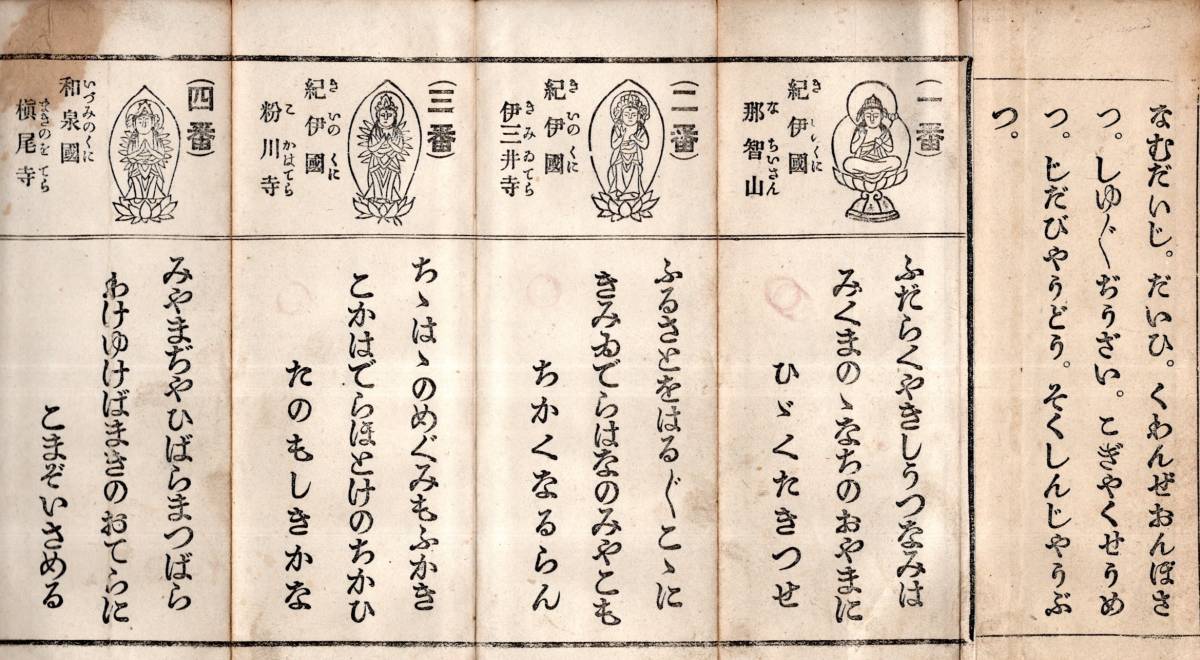 なむだいじ。だいひ。くわんぜおんぼさ
つ。しゆ〴〵ぢうざい。こぎやくせうめ
つ。じだびやうどう。そくしんじやうぶ
つ。
(一番)
きいのくに
紀伊國
なちいさん
那智山
ふだらくやきしうつなみは
みくまのゝなちのおやまに
ひゞくたきつせ
(二番)
きいのくに
紀伊國
きみゐてら
伊三井寺
ふるさとをはる〴〵こゝに
きみゐでらはなのみやこも
ちかくなるらん
(三番)
きいのくに
紀伊國
こかはてら
粉川寺
ちゝはゝのめぐみもふかき
こかはでらほとけのちかひ
たのもしきかな
(四番)
いづみのくに
和泉國
まきのをてら
槇尾寺
みやまぢやひばらまつばら
わけゆけばまきのおてらに
こまぞいさめる